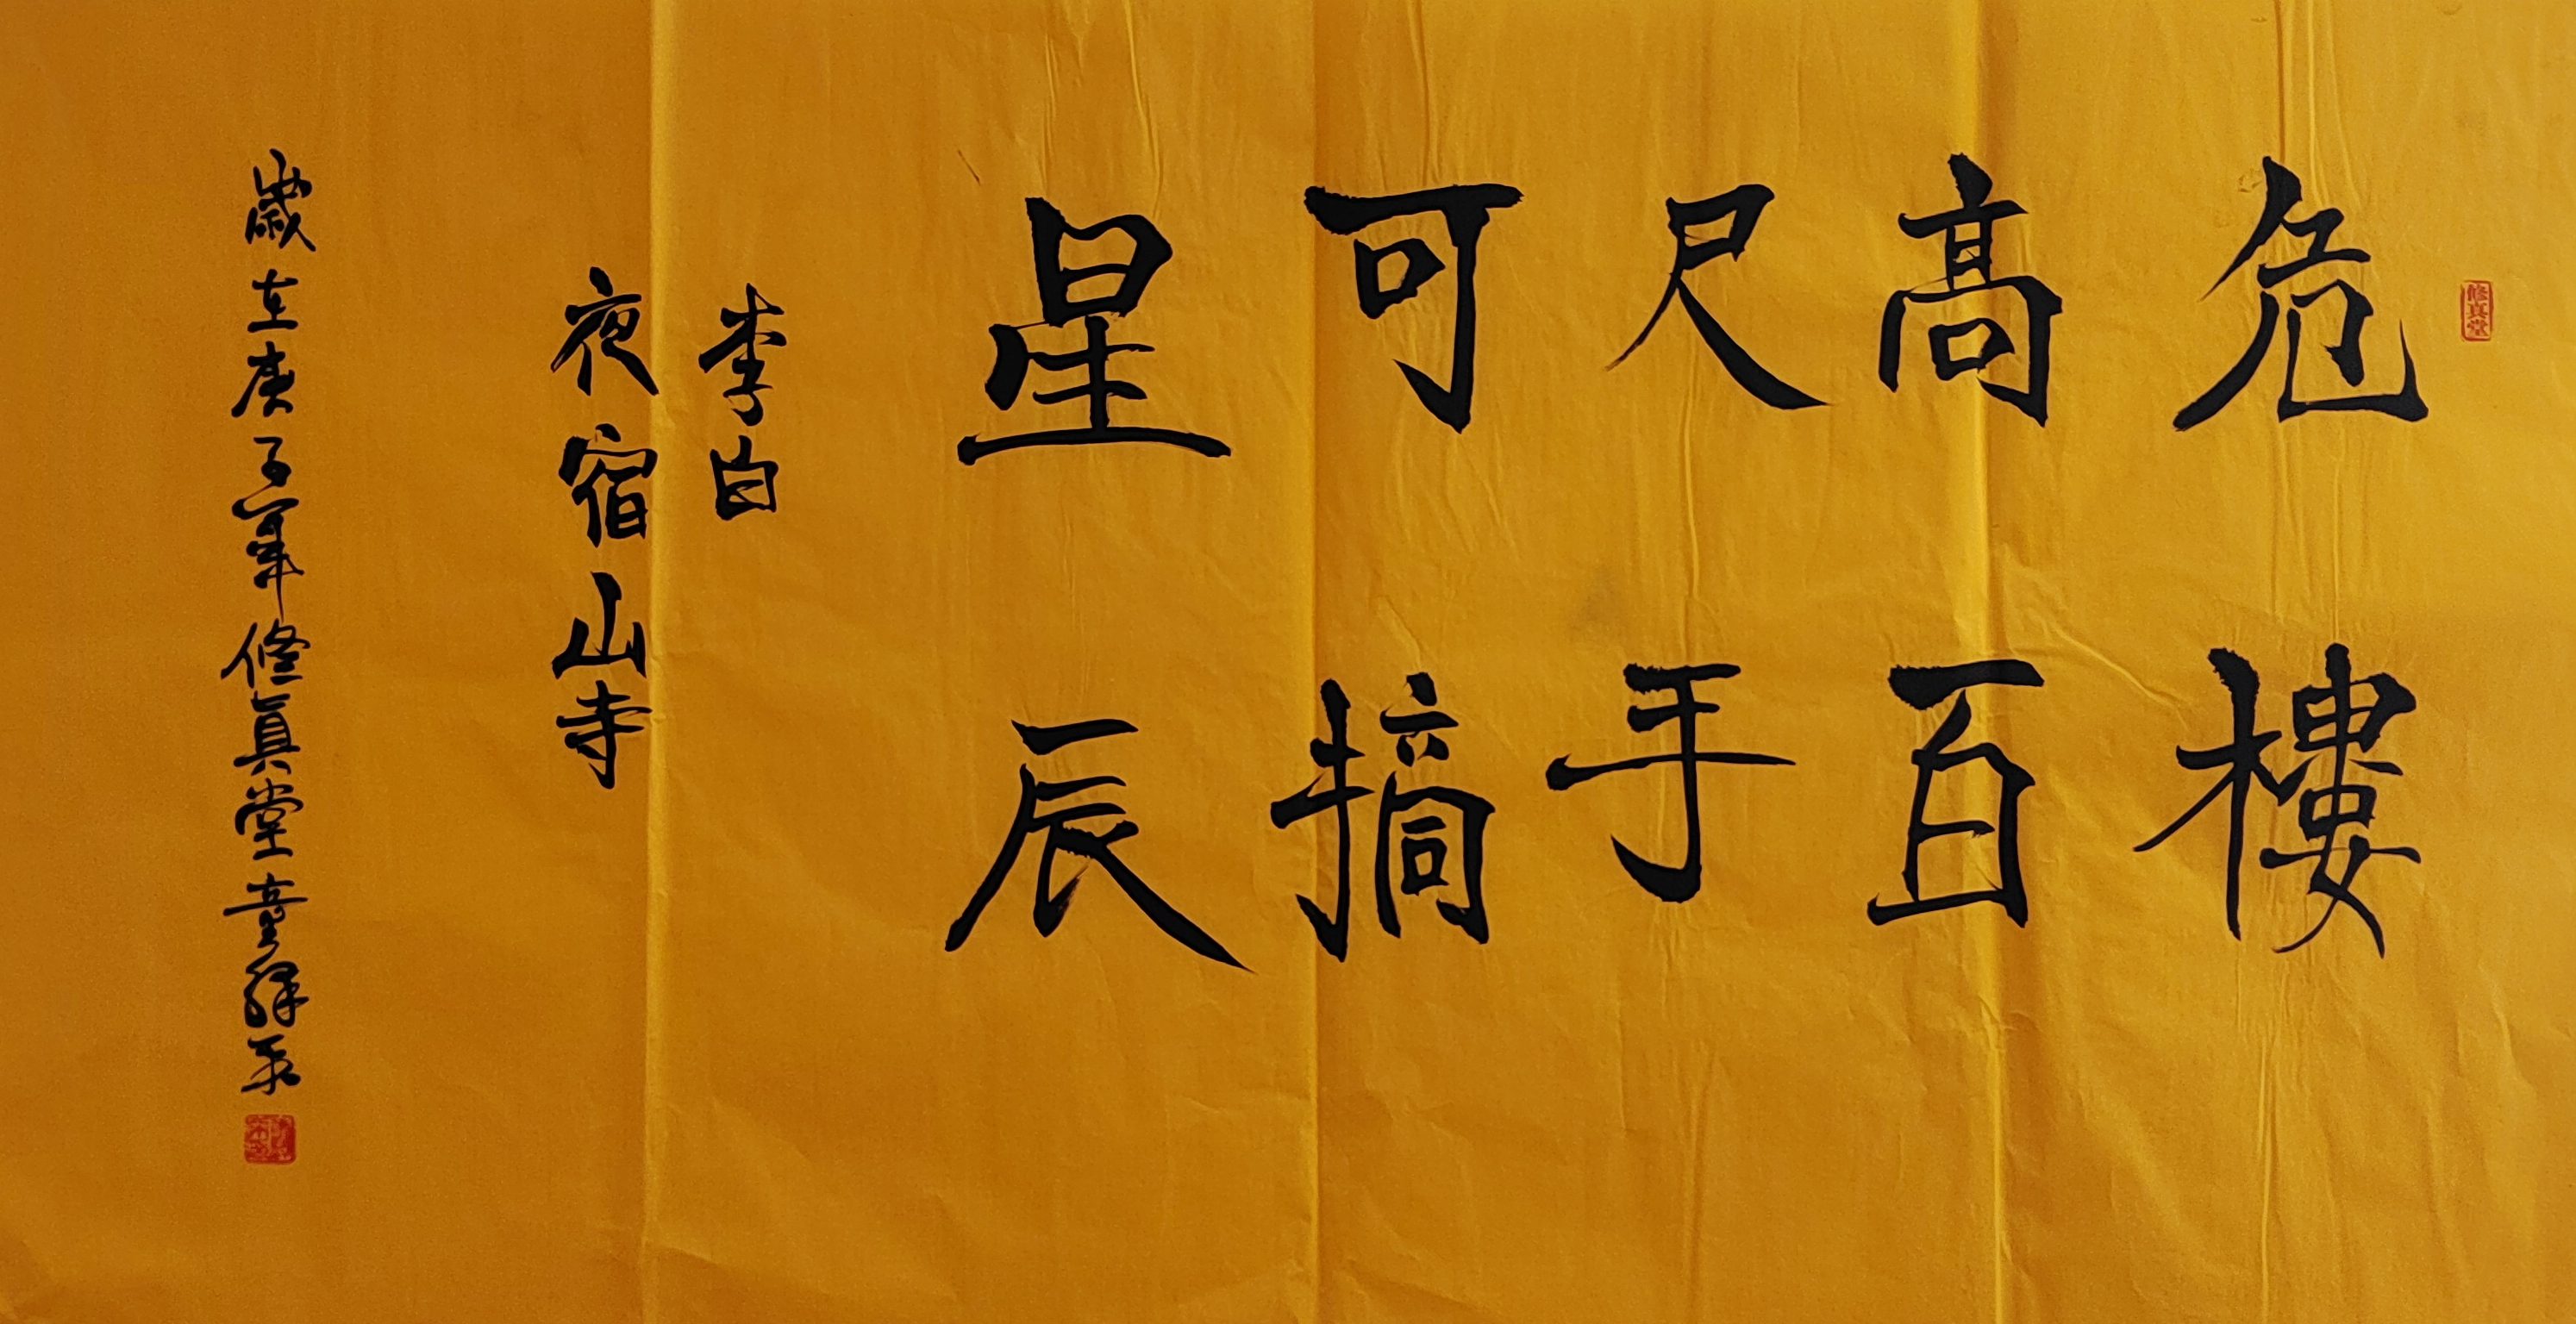 修真堂
危樓
高百
尺手
可摘
星辰
李白
夜宿山寺
歲在庚子年修真堂童祥泰